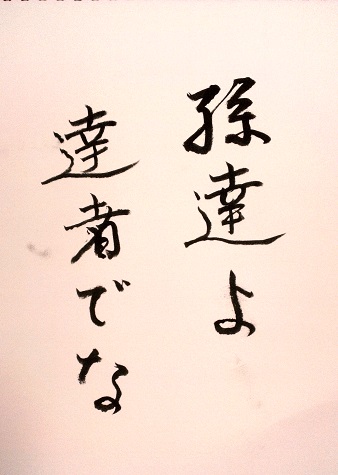 孫達よ
達者でな